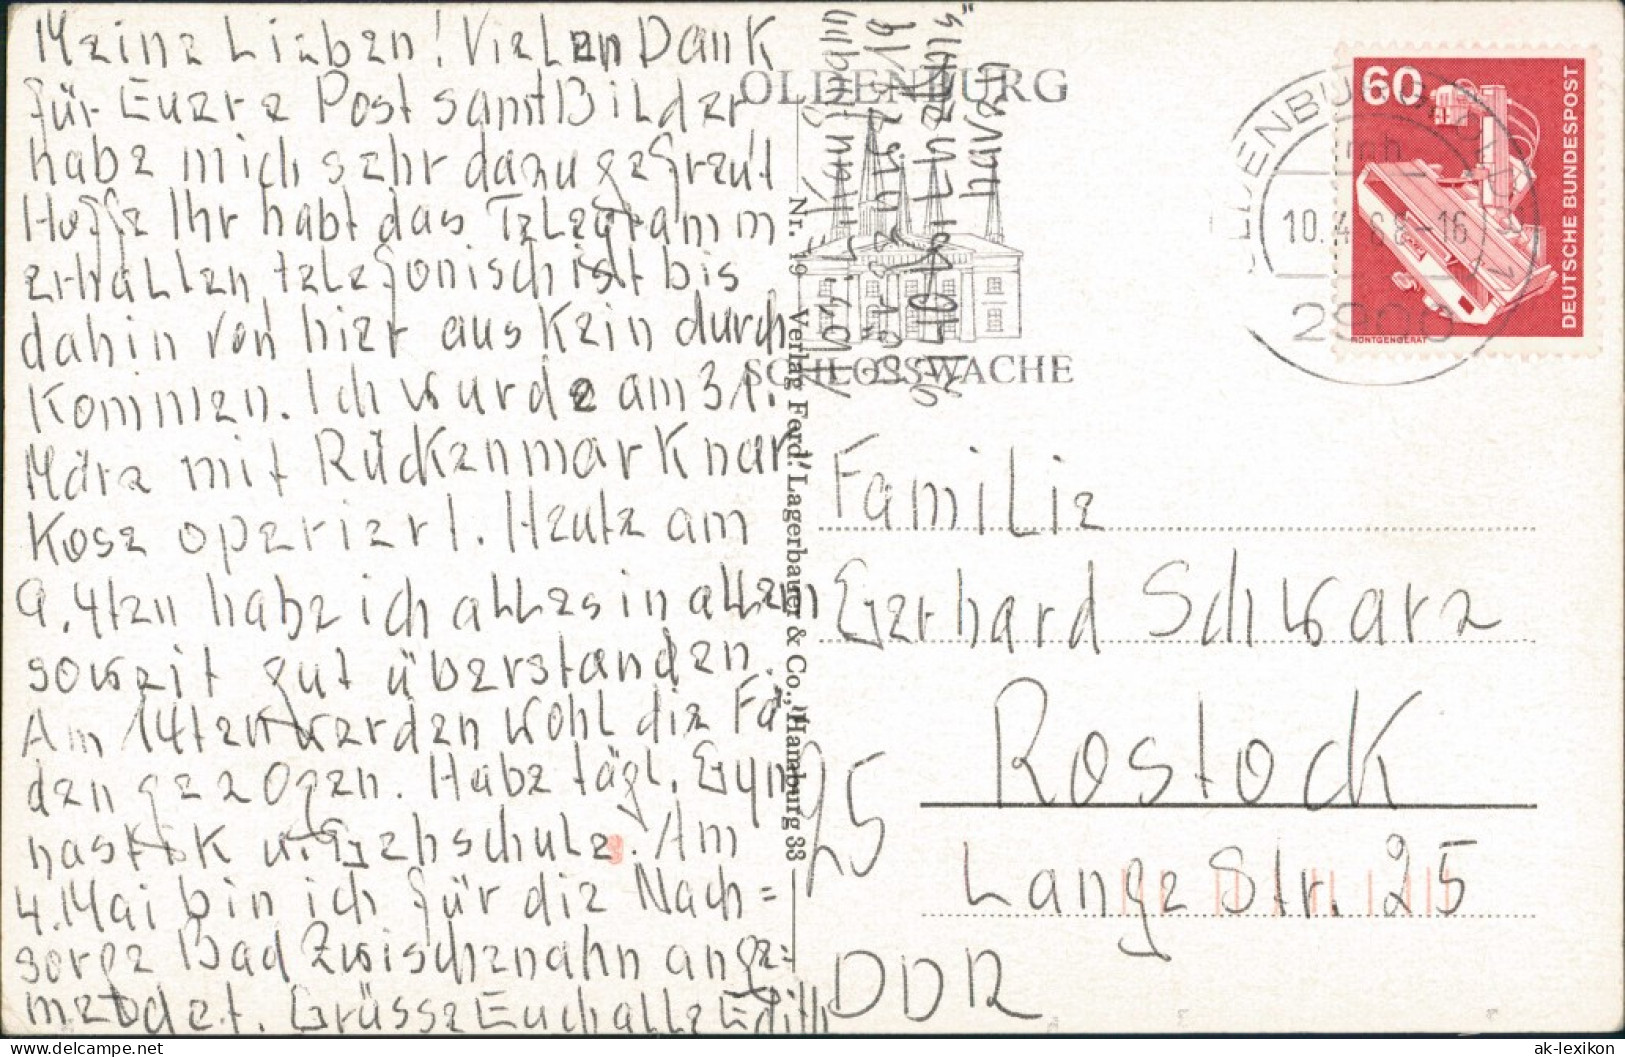 Meine Lieben! Vielen Dank
für Euere Post samt Bilder,
habe mich sehr dazu gefreut
Hoffe Ihr habt das Telegramm
erhallen, telefonisch ist bis
dahin von hier aus kein durch
kommen. Ich wurde am 31.
März mit Rückenmarknar
kose operiert. Heute am
9. 4ten habe ich alles in allem
soweit gut überstanden.
Am 14ten werden wohl die Fä
den gezogen. Habe tägl. Gym
nastik u. Gehschule. Am
4. Mai bin ich für die Nach=
sorge Bad Zwischenahn ange=
meldet. Grüsse Euch alle Edith
Nr. 19 Verlag Ferd. Lagerbauer & Co., Hamburg 33
OLDENBURG
SCHLOSSWACHE
OLDENBURG, OLDB 1
mh
10.4.
-16
2900
60
DEUTSCHE BUNDESPOST
RÖNTGENGERÄT
Familie
Gerhard Schwarz
25
Rostock
Lange Str. 25
DDR
ak-lexikon
© www.delcampe.net